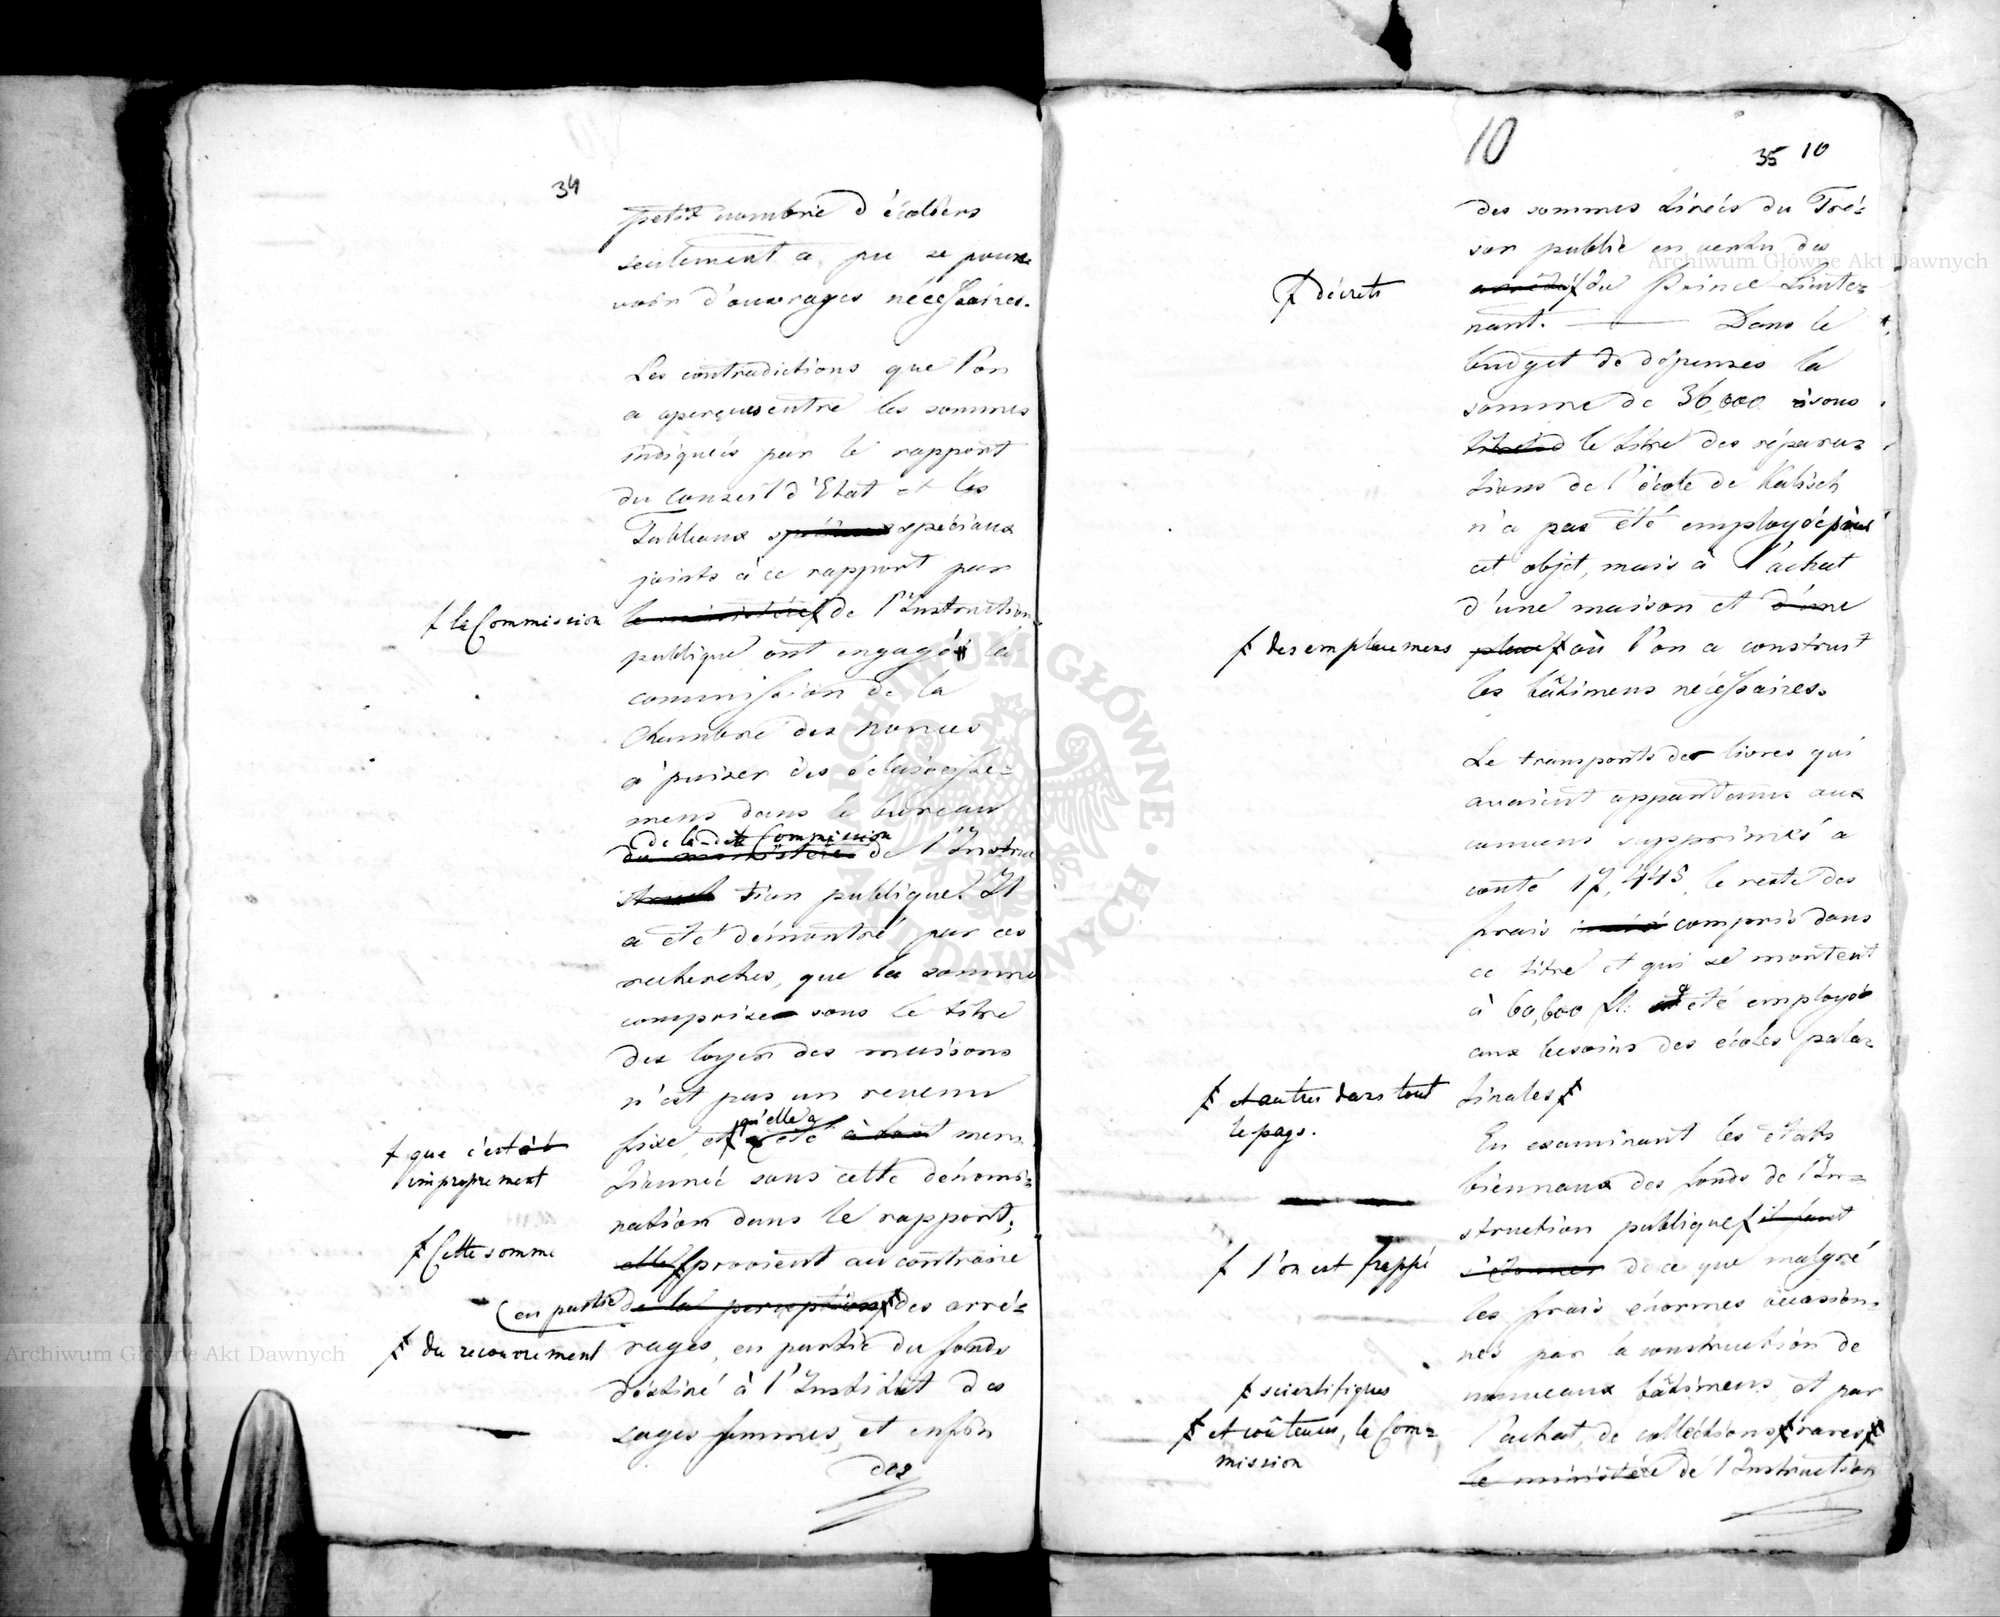 34
petit nombre d'écoliers
seulement a pu se pour-
voir d'ouvrages nécessaires.
Les contradictions que l'on
a aperçues entre les sommes
indiquées par le rapport
du Conseil d'Etat et les
Tableaux spéciaux
joints à ce rapport par
ƒ la Commission
le ministère ƒ de l'Instruction
publique ont engagé la
commission de la
Chambre des nonces
à puiser des éclaircisse=
mens dans le bureau
de la dte Commission
du ministère de l'Instru
tion publique. Il
a été démontré par ces
recherches, que la somme
comprise sous le titre
des loyers des maisons
n'est pas un revenu
qu'elle a
fixe, et ƒ été à tort men=
ƒ que c'est
improprement
tionnée sous cette dénomi=
nation dans le rapport;
ƒ Cette somme
elle ƒ provient au contraire
(en partie
de la perception ƒ des arré=
ƒ du recouvrement
rages, en partie du fonds
déstiné à l'Institut des
sages femmes, et enfin
des
10
35 10
des sommes tirées du Tré=
sor public en vertu des
ƒ décrets
arrêtés ƒ du Prince Lieute=
nant. — Dans le
budget de dépenses la
somme de 36,000 sous
le titre des répara=
tions de l'école de Kalisch
n'a pas été employée pour
cet objet, mais à l'achat
d'une maison et d'une
ƒ des emplacemens
place ƒ où l'on a construit
les bâtimens nécessaires.
Le transports des livres qui
avaient appartenus aux
couvens supprimés a
couté 17,445, le reste des
frais compris dans
ce titre et qui se montent
à 60,600 fl: a été employé
aux besoins des écoles pala=
tinales ƒ
ƒ et autres dans tout
le pays.
En examinant les états
biennaux des fonds de l'In=
struction publique ƒ il faut
ƒ l'on est frappé
s'étonner de ce que malgré
les frais énormes occasion=
nés par la construction de
nouveaux bâtimens, et par
ƒ scientifiques
l'achat de colléctions ƒ rares ƒ
ƒ et coûteuses, la Com=
mission
le ministère de l'Instruction
Archiwum Główne Akt Dawnych
Archiwum Główne Akt Dawnych
ARCHIWUM GŁÓWNE AKT DAWNYCH